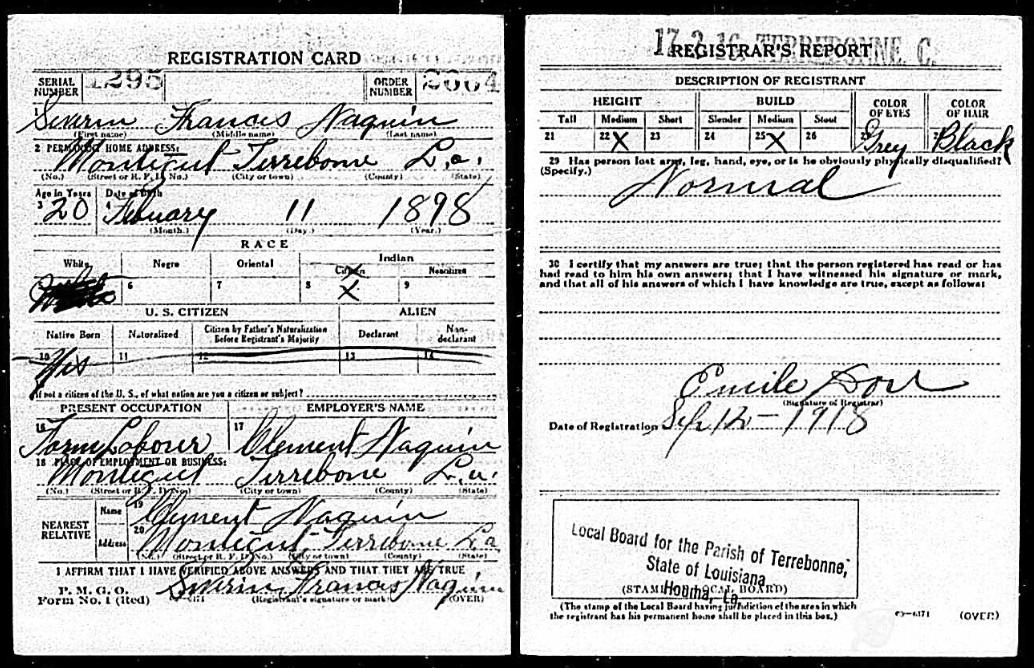 REGISTRATION CARD
SERIAL NUMBER 1295 ORDER NUMBER 2664
1 Severin Francis Naquin
(First name) (Middle name) (Last name)
2 PERMANENT HOME ADDRESS:
Montegut Terrebone La.
(No.) (Street or R. F. D. No.) (City or town) (County) (State)
Age in Years Date of Birth
3 20 4 Febuary 11 1898
(Month.) (Day.) (Year.)
RACE
White Negro Oriental Indian
Citizen Noncitizen
6 7 8 X 9
U. S. CITIZEN ALIEN
Native Born Naturalized Citizen by Father's Naturalization Before Registrant's Majority Declarant Non-declarant
10 Yes 11 12 13 14
If not a citizen of the U. S., of what nation are you a citizen or subject?
PRESENT OCCUPATION EMPLOYER'S NAME
16 Farm Laborer 17 Clement Naquin
18 PLACE OF EMPLOYMENT OR BUSINESS:
Montegut Terrebone La.
(No.) (Street or R. F. D. No.) (City or town) (County) (State)
NEAREST RELATIVE
Name 19 Clement Naquin
Address 20 Montegut Terrebone La
(No.) (Street or R. F. D. No.) (City or town) (County) (State)
I AFFIRM THAT I HAVE VERIFIED ABOVE ANSWERS AND THAT THEY ARE TRUE
P. M. G. O.
Form No. 1 (Red) 03—6171 Severin Francis Naquin
(Registrant's signature or mark) (OVER)
17-2-16 TERREBONNE C.
REGISTRAR'S REPORT
DESCRIPTION OF REGISTRANT
HEIGHT BUILD COLOR OF EYES COLOR OF HAIR
Tall Medium Short Slender Medium Stout
21 22 X 23 24 25 X 26 Grey Black
29 Has person lost arm, leg, hand, eye, or is he obviously physically disqualified?
(Specify.) Normal
30 I certify that my answers are true; that the person registered has read or has
had read to him his own answers; that I have witnessed his signature or mark,
and that all of his answers of which I have knowledge are true, except as follows:
Emile
(Signature of Registrar)
Date of Registration Sep 12 - 1918
Local Board for the Parish of Terrebonne,
State of Louisiana
Houma, La
(STAMP OF LOCAL BOARD)
(The stamp of the Local Board having jurisdiction of the area in which
the registrant has his permanent home shall be placed in this box.)
03—6171 (OVER)